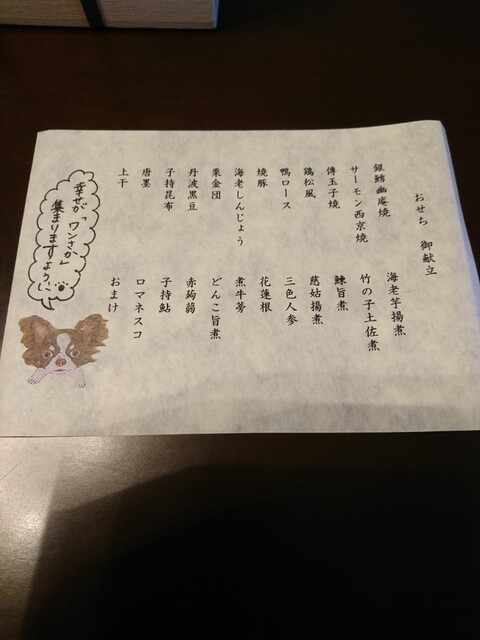 おせち 御献立
銀鱈幽庵焼
サーモン西京焼
傳玉子焼
鶏松風
鴨ロース
焼豚
海老しんじょう
栗金団
丹波黒豆
子持昆布
唐墨
上干
海老芋揚煮
竹の子土佐煮
鰊旨煮
慈姑揚煮
三色人参
花蓮根
煮牛蒡
どんこ旨煮
赤蒟蒻
子持鮎
ロマネスコ
おまけ
幸せが「ワンさか」
集まりますように